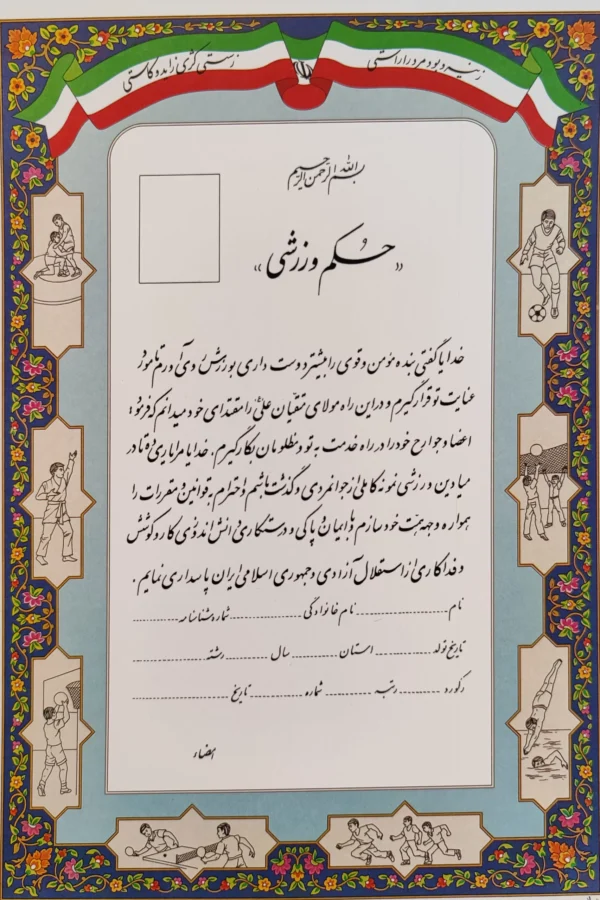 ز نیرو بود مرد را راستی
ز سستی کژی زاید و کاستی
بسم الله الرحمن الرحیم
«حکم ورزشی»
خدایا گفتی بنده مؤمن و قوی را بیشتر دوست داری بورزش روی آوردم تا مورد
عنایت تو قرار گیرم و در این راه مولای متقیان علی را مقتدای خود میدانم که فرمود:
اعضاء و جوارح خود را در راه خدمت به تو و مظلومان بکار گیرم. خدایا مرا یاری ده تا در
میادین ورزشی نمونه کاملی از جوانمردی و گذشت باشم و احترام به قوانین و مقررات را
همواره وجهه همت خود سازم و با ایمان و پاکی و درستکاری دانش اندوزی کار و کوشش
و فداکاری از استقلال آزادی و جمهوری اسلامی ایران پاسداری نمایم.
نام .......... نام خانوادگی .......... شماره شناسنامه ..........
تاریخ تولد .......... استان .......... سال .......... رشته ..........
رکورد .......... رتبه .......... شماره .......... تاریخ ..........
امضاء